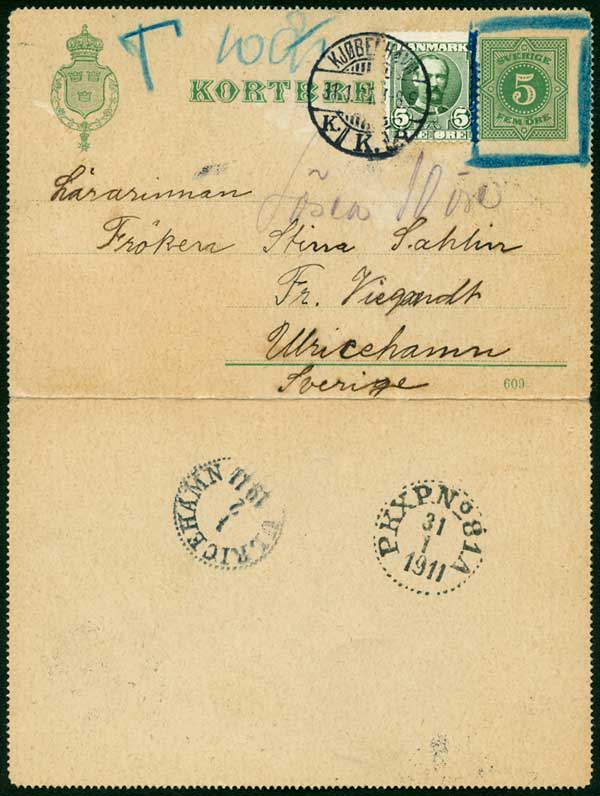 T 10
KORTBREF
KJØBENHAVN
31.1.11
K. K.B
DANMARK
5 5
ØRE
SVERIGE
5
FEM ÖRE
Lösen 10 öre
Lärarinnan
Fröken Stina Sahlin
Fr. Viegandt
Ulricehamn
Sverige
609
ULRICEHAMN
1
2
1911
PKXP.No 81A
31
1
1911